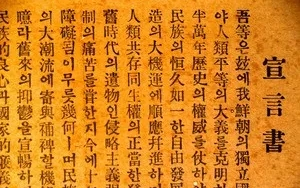 宣言書
吾等은玆에我鮮朝의獨立國
야人類平等의大義를克明하
半萬年歷史의權威를仗하야
民族의恒久如一한自由發展
造의大機運에順應幷進하기
人類共存同生權의正當한發
舊時代의遺物인侵略主義强
制의痛苦를嘗한지今에十
障礙됨이무릇幾何ㅣ며民
의大潮流에寄與補裨할機
噫라舊來의抑鬱을宣暢하
民族的良心과國家的廉義